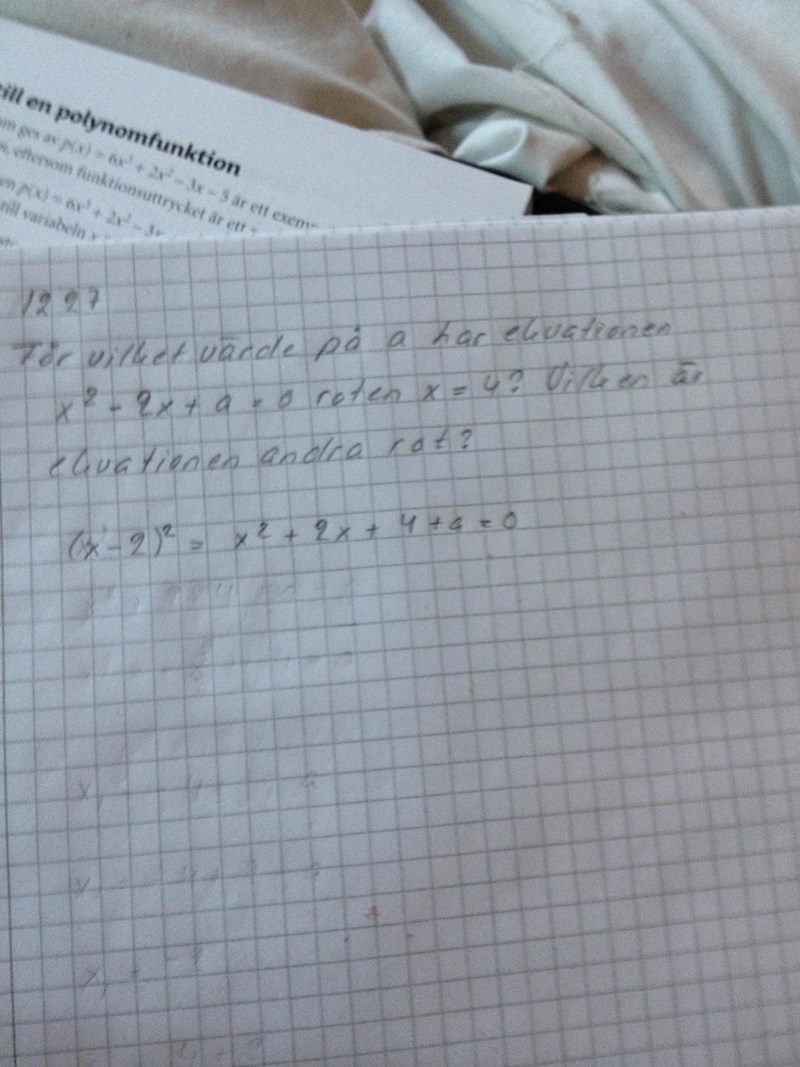 till en polynomfunktion
om ges av p(x) = 6x³ + 2x² − 3x − 5 är ett exem
eftersom funktionsuttrycket är ett
en p(x) = 6x³ + 2x² − 3x
till variabeln
1227
För vilket värde på a har ekvationen
x² - 2x + a = 0 roten x = 4? Vilken är
ekvationen andra rot?
(x - 2)² = x² + 2x + 4 + a = 0